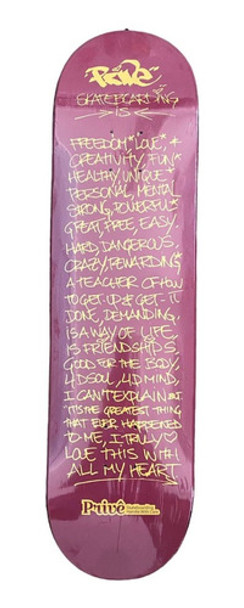 Privé
SKATEBOARDING
IS
FREEDOM, LOVE, +
CREATIVITY, FUN,
HEALTHY, UNIQUE,
PERSONAL, MENTAL
STRONG, POWERFUL,
GREAT, FREE, EASY.
HARD, DANGEROUS,
CRAZY, REWARDING,
A TEACHER OF HOW
TO GET-UP & GET-IT
DONE, DEMANDING.
IS A WAY OF LIFE,
IS FRIENDSHIPS,
GOOD FOR THE BODY,
YD SOUL, YD MIND,
I CAN'T EXPLAIN BUT
IT IS THE GREATEST THING
THAT EVER HAPPENED
TO ME, I TRULY ♡
LOVE THIS WITH
ALL MY HEART
Privé
Skateboarding
Handle With Care